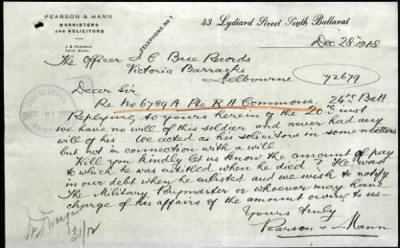 PEARSON & MANN
BARRISTERS
AND SOLICITORS
TELEPHONE, NO. 7
43 Lydiard Street South Ballarat
Dec 28 1918
The Officer I/C Base Records
Victoria Barracks
Melbourne
72679
Dear Sir
Re No 6789 A Pte R H Commons 24th Batt
Replying to yours herein of the 20th inst
we have no will of this soldier and never had any
will of his. We acted as his solicitors in some matters
but not in connection with a will.
Will you kindly let us know the amount of pay
to which he was entitled when he died? He was
in our debt when he enlisted and we wish to notify
the Military Paymaster or whoever may have
charge of his affairs of the amount owing to us
Yours truly
Pearson & Mann
31/12